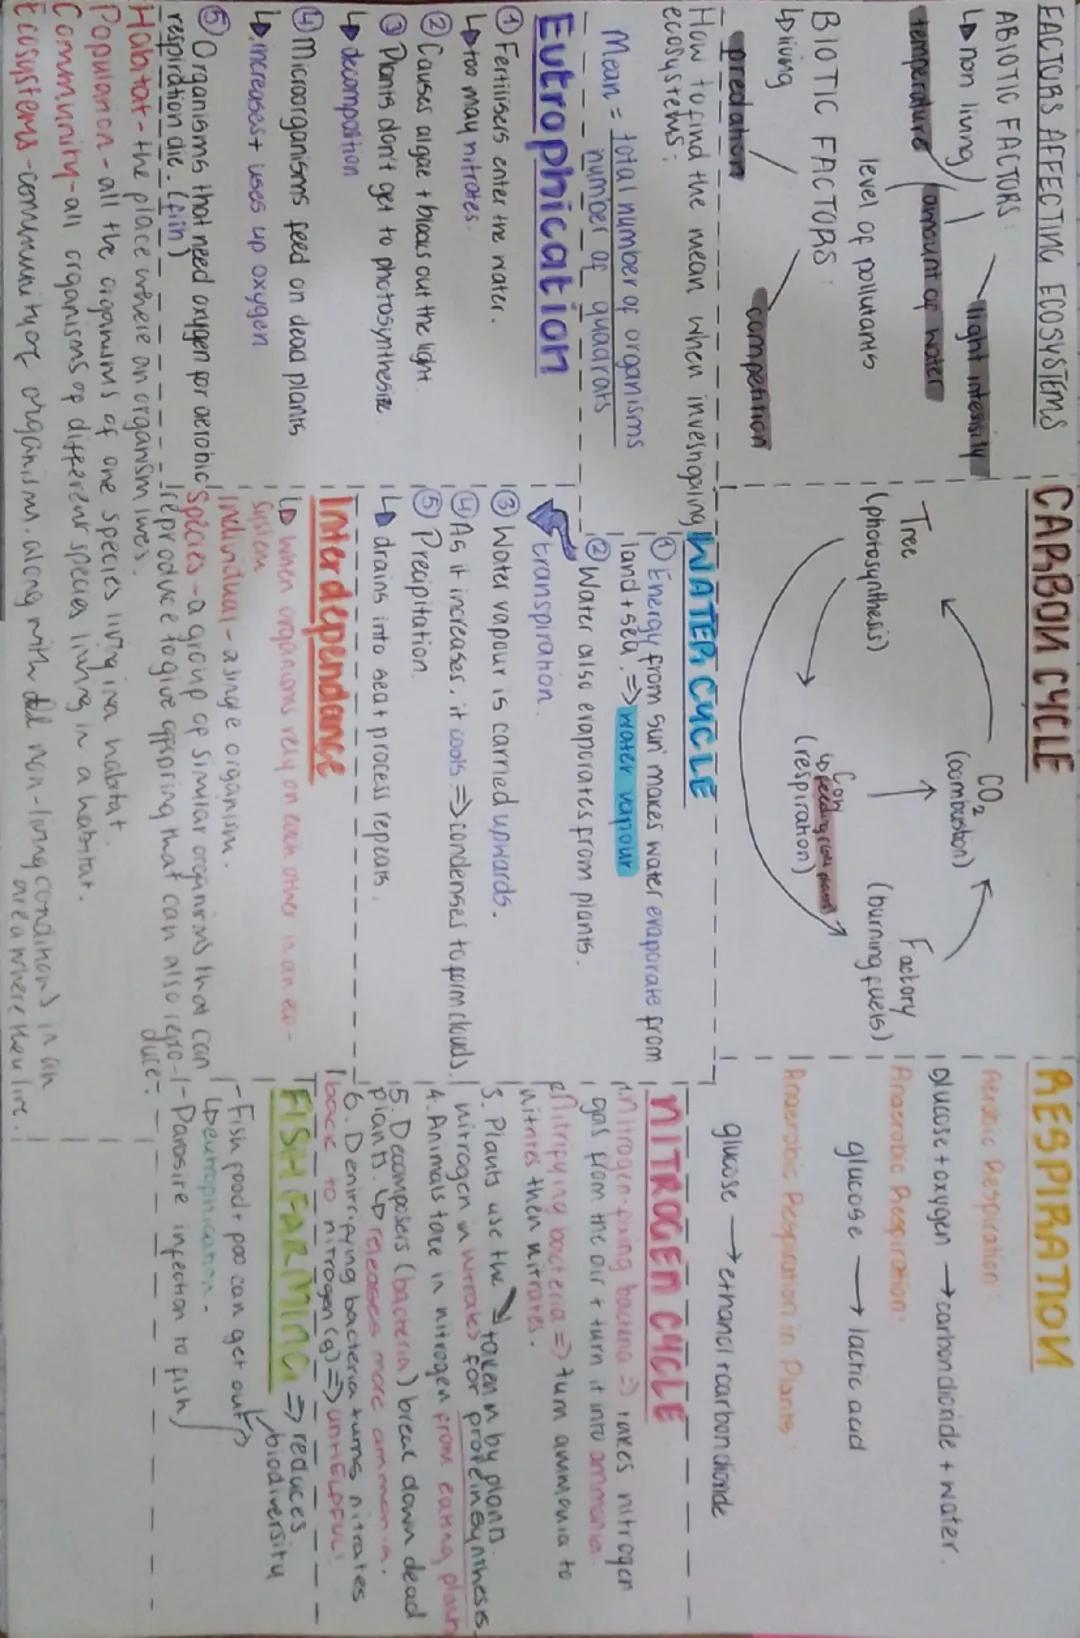 FACTORS AFFECTING ECOSYSTEMS
ABIOTIC FACTORS:
↳ non living
temperature
light intensity
amount of water
level of pollutants
BIOTIC FACTORS:
↳ living
predation
competition
How to find the mean when invesngaing
ecosystems:
Mean = total number of organisms
number of quadrats
Eutrophication
① Fertilisers enter the water.
↳ too may nitrates.
② Causes algae + blocks out the light.
③ Plants don't get to photosynthesize.
↳ decomposition
④ Microorganisms feed on dead plants
↳ increases + uses up oxygen
⑤ Organisms that need oxygen for aerobic
respiration die. (fish)
CARBON CYCLE
CO2
(combustion)
Tree
(photosynthesis)
Cow
↳ feeding on plants
(respiration)
Factory
(burning fuels)
WATER CYCLE
① Energy from sun makes water evaporate from
land + sea. => water vapour
② Water also evaporates from plants.
transpiration.
③ Water vapour is carried upwards.
④ As it increases, it cools => condenses to form clouds.
⑤ Precipitation.
↳ drains into sea + process repeats.
Interdependance
↳ When organisms rely on each other in an eco-
system
Individual - a single organism.
Species - a group of similar organisms that can
reproduce to give offspring that can also repro-
duce.
Habitat - the place where an organism lives.
Population - all the organisms of one species living in a habitat
Community - all organisms of different species living in a habitat.
Ecosystems - community of organism, along with all non-living conditions in an
area where they live.
RESPIRATION
Aerobic Respiration:
Glucose + oxygen → carbon dioxide + water.
Anaerobic Respiration:
glucose → lactic acid
Anaerobic Respiration in Plants:
glucose → ethanol + carbon dioxide
NITROGEN CYCLE
1. Nitrogen-fixing bacteria => takes nitrogen
gas from the air + turn it into ammonia.
2. Nitrifying bacteria => turn ammonia to
nitrites then nitrates.
3. Plants use the → taken in by plants.
nitrogen in nitrates for protein synthesis
4. Animals take in nitrogen from eating plants
5. Decomposers (bacteria) break down dead
plants. ↳ releases more ammonia.
6. Denitrifying bacteria turns nitrates
back to nitrogen (g) => UNHELPFUL!
FISH FARMING => reduces
biodiversity
- Fish food + poo can get out
↳ eutrophication -
- Parasite infection to fish